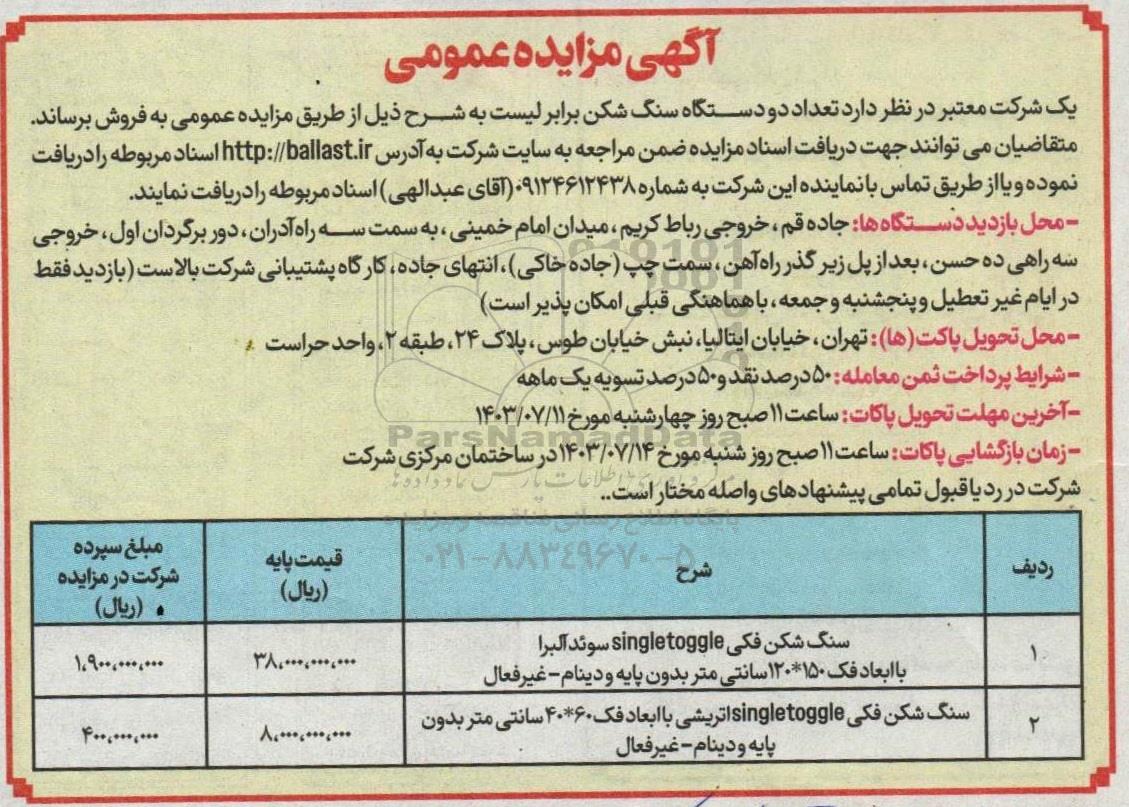 آگهی مزایده عمومی
یک شرکت معتبر در نظر دارد تعداد دو دستگاه سنگ شکن برابر لیست به شرح ذیل از طریق مزایده عمومی به فروش برساند.
متقاضیان می توانند جهت دریافت اسناد مزایده ضمن مراجعه به سایت شرکت به آدرس http://ballast.ir اسناد مربوطه را دریافت
نموده و یا از طریق تماس با نماینده این شرکت به شماره ۰۹۱۲۴۶۱۲۴۳۸ (آقای عبدالهی) اسناد مربوطه را دریافت نمایند.
-محل بازدید دستگاه ها: جاده قم، خروجی رباط کریم، میدان امام خمینی، به سمت سه راه آدران، دور برگردان اول، خروجی
سه راهی ده حسن، بعد از پل زیر گذر راه آهن، سمت چپ (جاده خاکی)، انتهای جاده، کارگاه پشتیبانی شرکت بالاست (بازدید فقط
در ایام غیر تعطیل و پنجشنبه و جمعه، با هماهنگی قبلی امکان پذیر است)
-محل تحویل پاکت (ها): تهران، خیابان ایتالیا، نبش خیابان طوس، پلاک ۲۴، طبقه ۲، واحد حراست
-شرایط پرداخت ثمن معامله: ۵۰ درصد نقد و ۵۰ درصد تسویه یک ماهه
-آخرین مهلت تحویل پاکات: ساعت ۱۱ صبح روز چهارشنبه مورخ ۱۴۰۳/۰۷/۱۱
-زمان بازگشایی پاکات: ساعت ۱۱ صبح روز شنبه مورخ ۱۴۰۳/۰۷/۱۴ در ساختمان مرکزی شرکت
شرکت در رد یا قبول تمامی پیشنهادهای واصله مختار است..
ParsNamadData
پایگاه اطلاع رسانی مناقصه و مزایده
۰۲۱-۸۸۳۴۹۶۷۰-۵
ردیف
شرح
قیمت پایه
(ریال)
مبلغ سپرده
شرکت در مزایده
(ریال)
۱
سنگ شکن فکی singletoggle سوئد آلبرا
با ابعاد فک ۱۵۰*۱۲۰ سانتی متر بدون پایه و دینام-غیرفعال
۳۸,۰۰۰,۰۰۰,۰۰۰
۱,۹۰۰,۰۰۰,۰۰۰
۲
سنگ شکن فکی singletoggle اتریشی با ابعاد فک ۶۰*۴۰ سانتی متر بدون
پایه و دینام-غیرفعال
۸,۰۰۰,۰۰۰,۰۰۰
۴۰۰,۰۰۰,۰۰۰